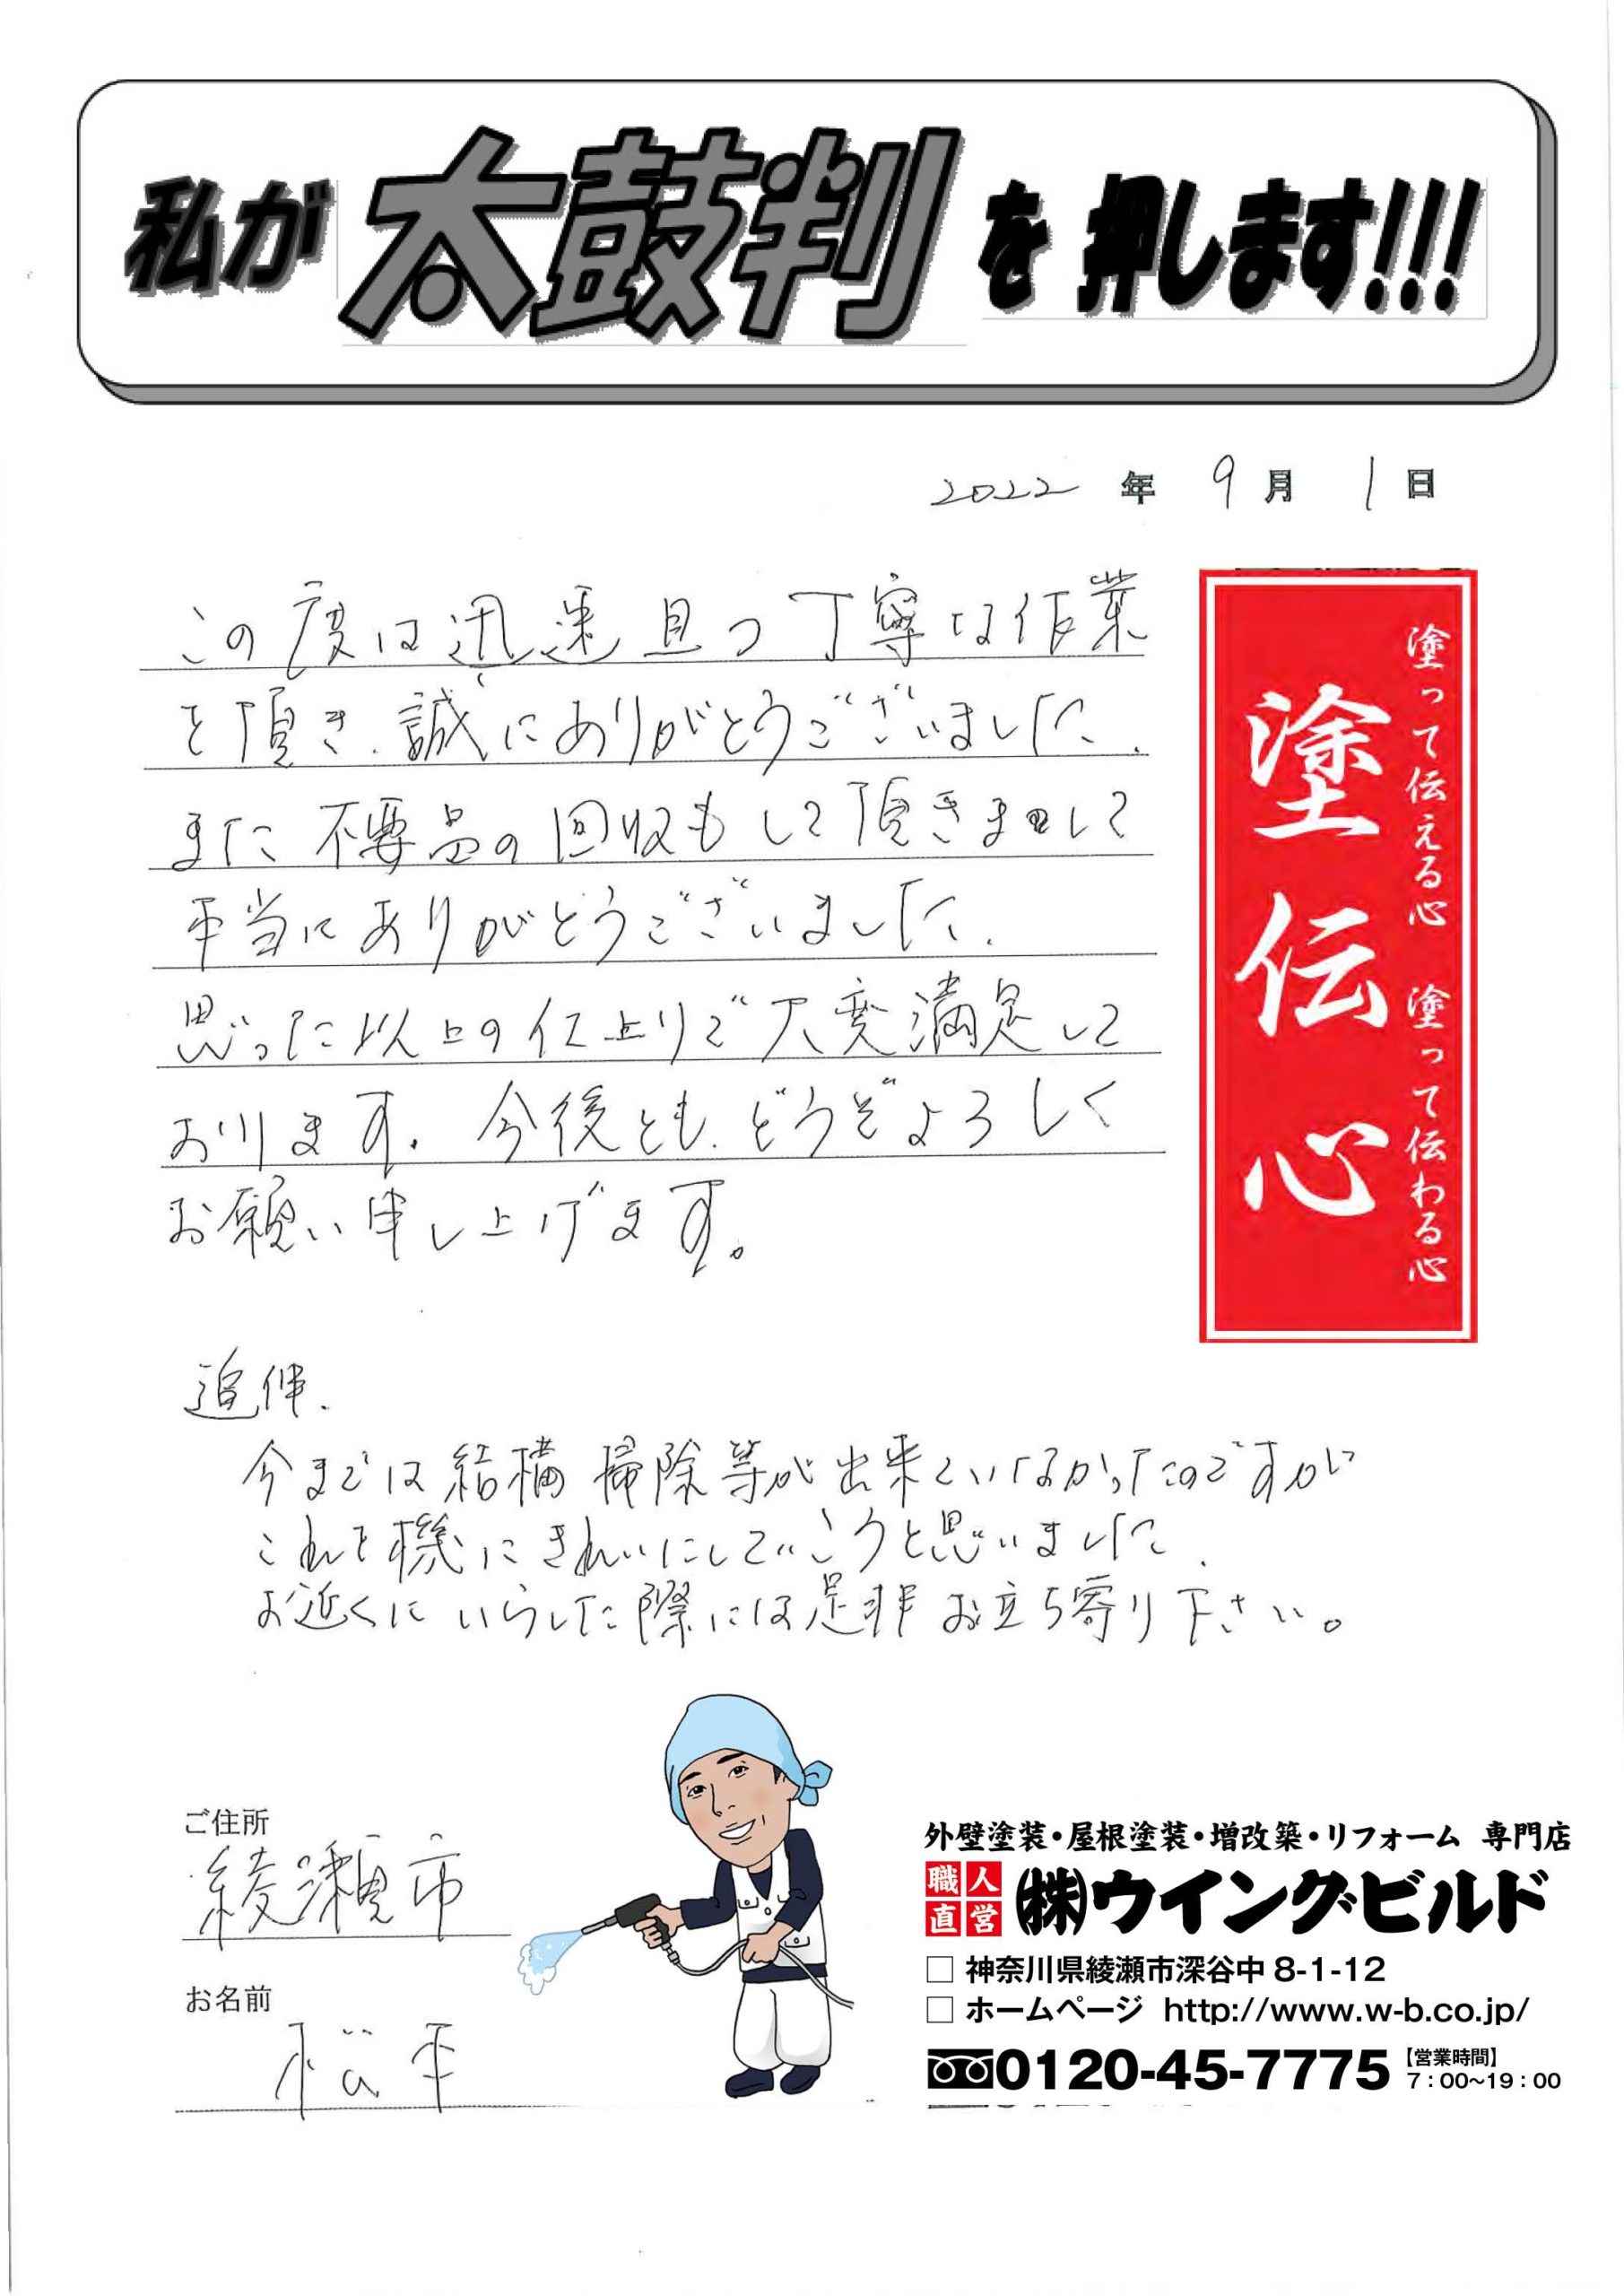 私が太鼓判を押します!!!
2022年9月1日
この度は迅速且つ丁寧な作業
を頂き、誠にありがとうございました。
また不要品の回収もして頂きまして
本当にありがとうございました。
思った以上の仕上りで大変満足して
おります。今後とも、どうぞよろしく
お願い申し上げます。
塗って伝える心 塗って伝わる心
塗伝心
追伸、
今までは結構掃除等が出来ていなかったのですが
これを機にきれいにしていこうと思いました。
お近くにいらした際には是非お立ち寄り下さい。
ご住所
綾瀬市
お名前
松平
外壁塗装・屋根塗装・増改築・リフォーム 専門店
職人直営 ㈱ウイングビルド
□ 神奈川県綾瀬市深谷中 8-1-12
□ ホームページ http://www.w-b.co.jp/
0120-45-7775 【営業時間】 7:00~19:00